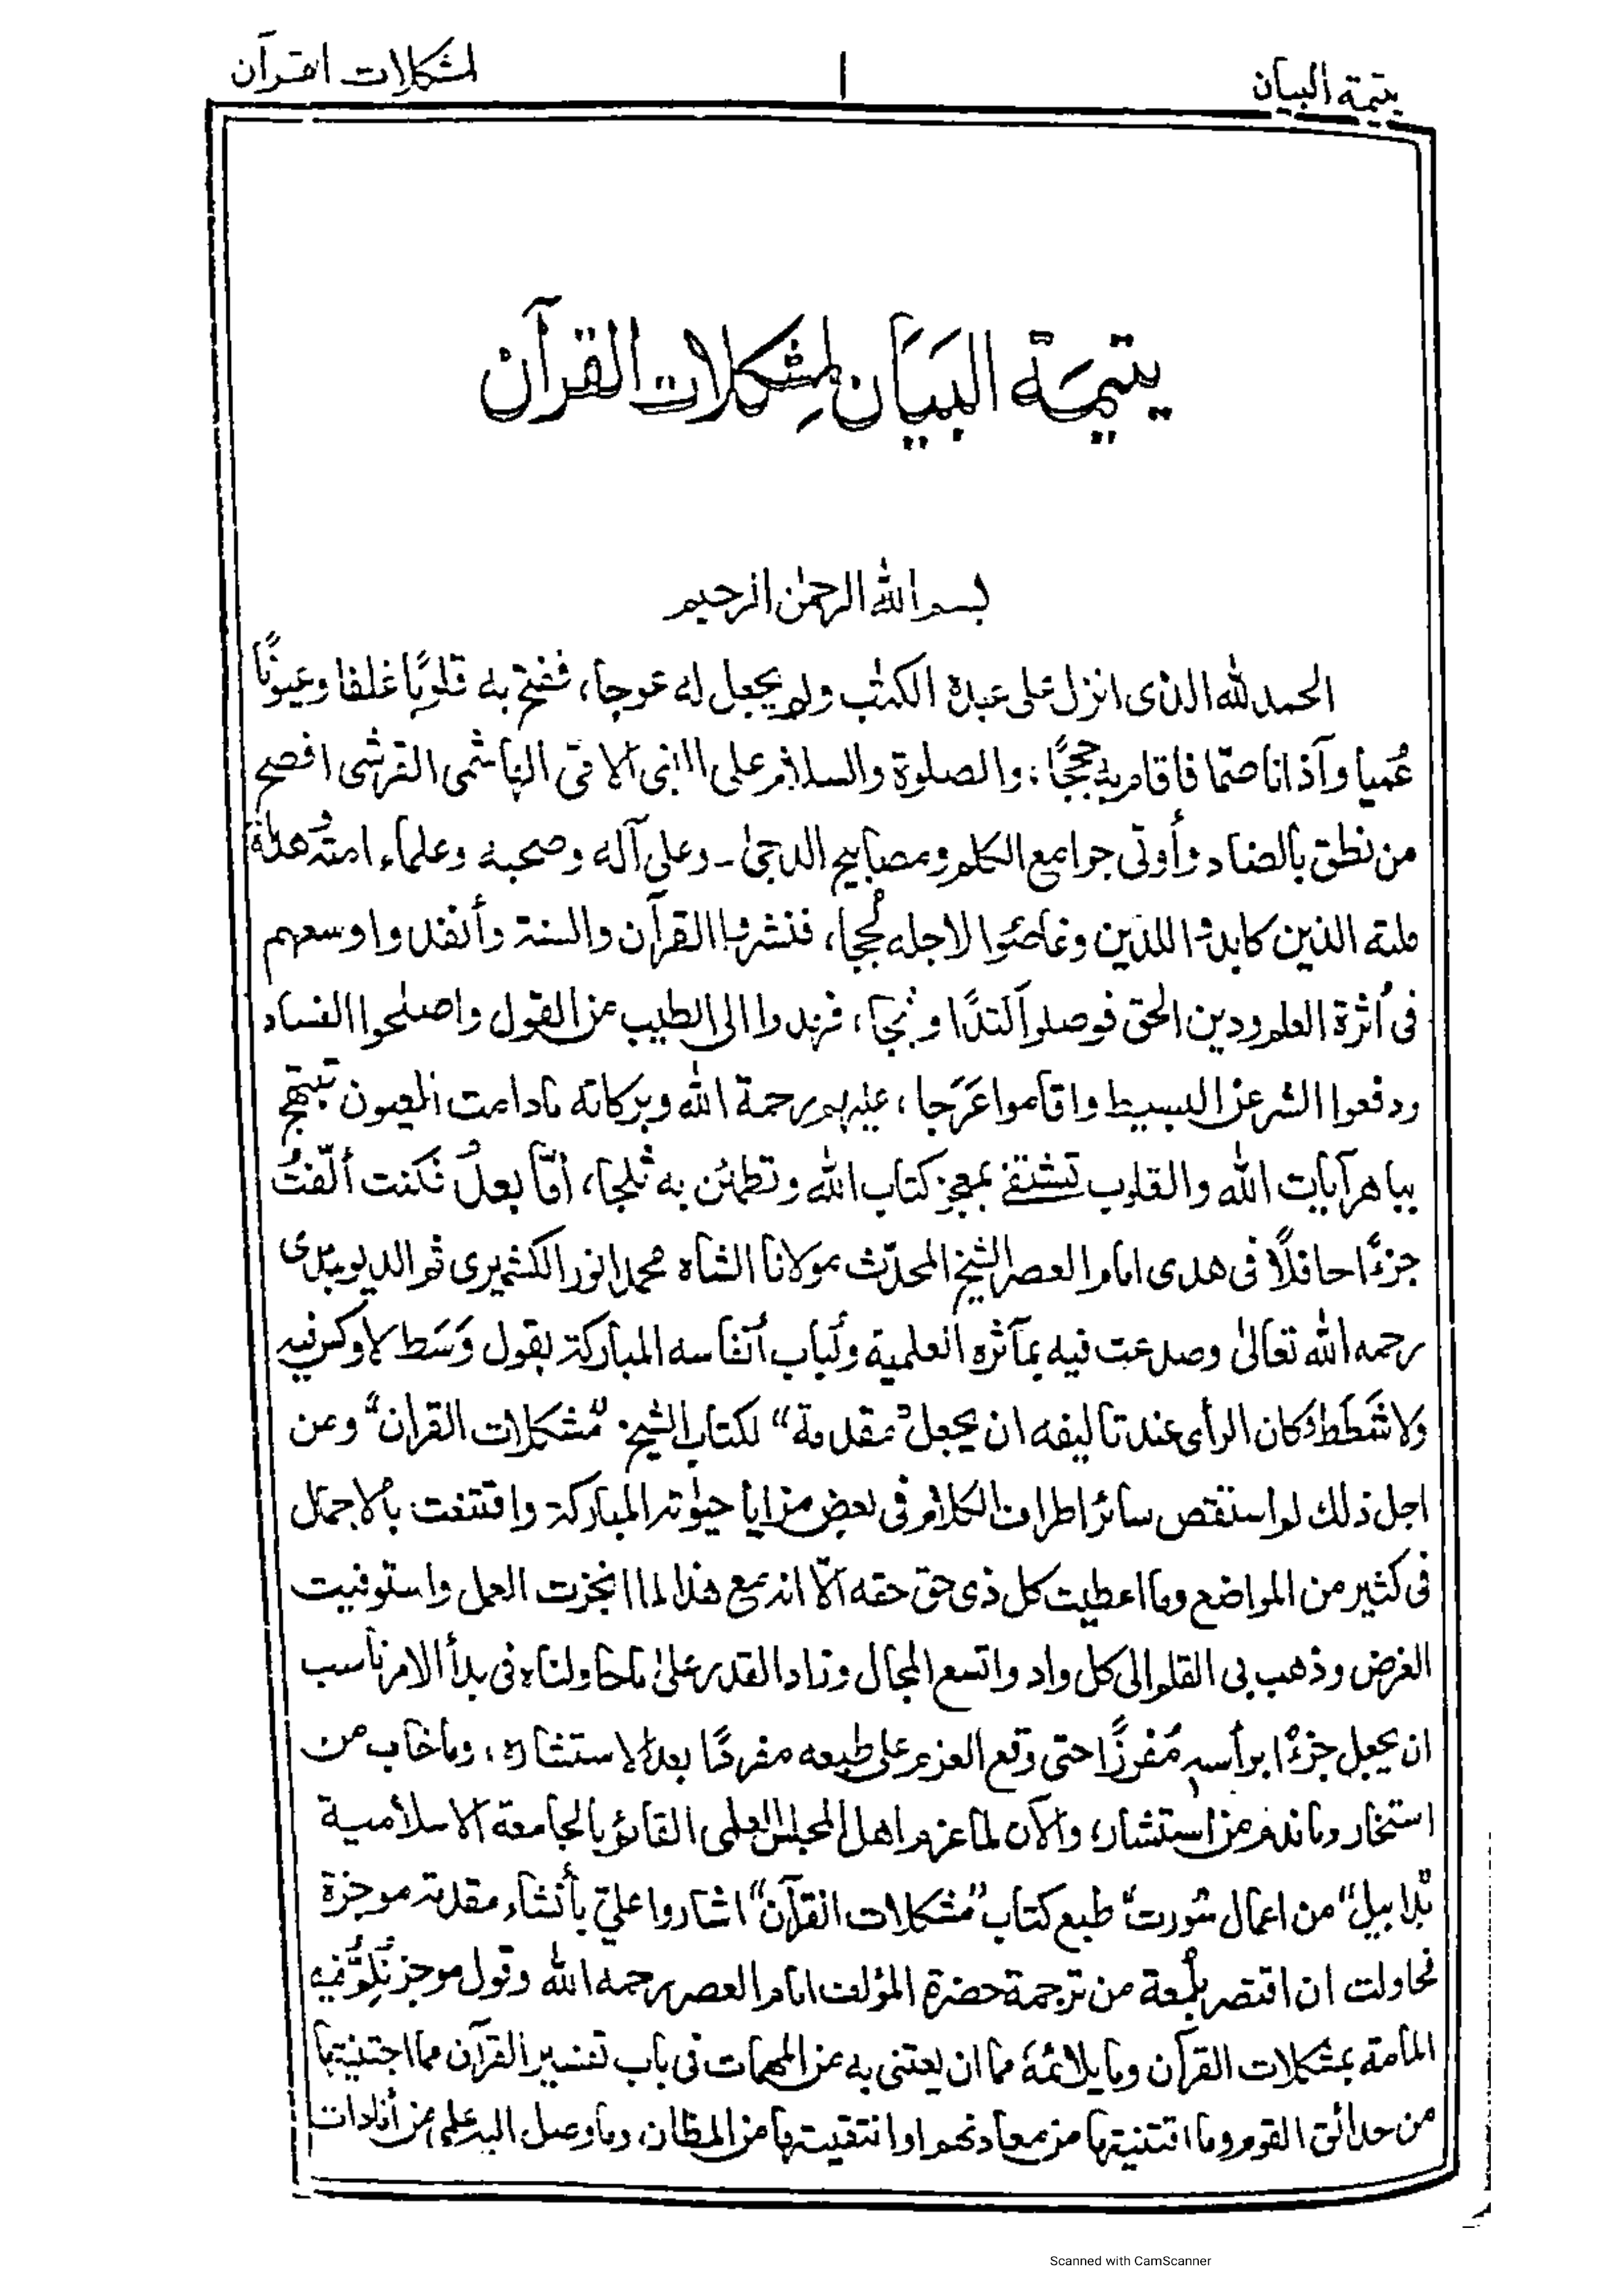 يتيمة البيان
١
لمشكلات القرآن
يتيمة البيان لمشكلات القرآن
بسم الله الرحمن الرحيم
الحمد لله الذى انزل على عبده الكتب ولم يجعل له عوجا، ففتح به قلوبًا غلفا وعيونًا
عُميا وآذانا صمّا فاقام به حججًا، والصلوة والسلام على النبى الامّى الهاشمى القرشى افصح
من نطق بالضاد وأوتى جوامع الكلم ومصابيح الدجىٰ ـ وعلى آله وصحبه وعلماء امته هداة
ملته الذين كابدوا للدين وغاصوا لاجله لُججا، فنشروا القرآن والسنة و اوسعهم
فى أثرة العلم ودين الحق فوصلوا ، فهدوا الى الطيب من القول واصلحوا الفساد
ودفعوا الشر عن البسيط واقاموا عَرَجا، عليهم رحمة الله وبركاته مادامت العيون تبتهج
بباهر آيات الله والقلوب تشتفى بمعجز كتاب الله وتطمئن به ثلجا، أمّا بعد فكنت ألّفتُ
جزءًا حافلًا فى هدى امام العصر الشيخ المحدّث مولانا الشاه محمد انور الكشميرى ثم الديوبندى
رحمه الله تعالىٰ وصدعت فيه بمآثره العلمية ولُباب أنفاسه المباركة بقول وَسَط لا وكس فيه
ولا شَطَط وكان الرأى عند تاليفه ان يجعل "مقدمة" لكتاب الشيخ "مشكلات القران" ومن
اجل ذلك لم استقص سائر اطراف الكلام فى بعض مزايا حيٰوته المباركة واقتنعت بالاجمال
فى كثير من المواضع وما اعطيت كل ذى حق حقه الّا انه مع هذا لما انجزت العمل واستوفيت
الغرض وذهب بى القلم الى كل واد واتسع المجال وزاد القدر علىٰ ما حاولناه فى بدأ الامر ناسب
ان يجعل جزءًا برأسه مُفرزًا حتى وقع العزم على طبعه مفردًا بعد الاستشارة، وما خاب من
استخار وما ندم من استشار، والآن لما عزم اهل المجلس العلمى القائم بالجامعة الاسلامية
"بدابيل" من اعمال "سورت" طبع كتاب "مشكلات القرآن" اشاروا علىّ بأنشاء مقدمة موجزة
فحاولت ان اقتصر بلُمعة من ترجمة حضرة المؤلف امام العصر رحمه الله وقول موجز
المامة بمشكلات القرآن وما يلائمهٗ مما ان يعتنى به من المهمات فى باب تفسير القرآن مما اجتنيتها
من حدائق القوم وما اقتنيتها من معادنهم او انتقيتها من المظان، وما وصل اليه علمى من أفادات
Scanned with CamScanner